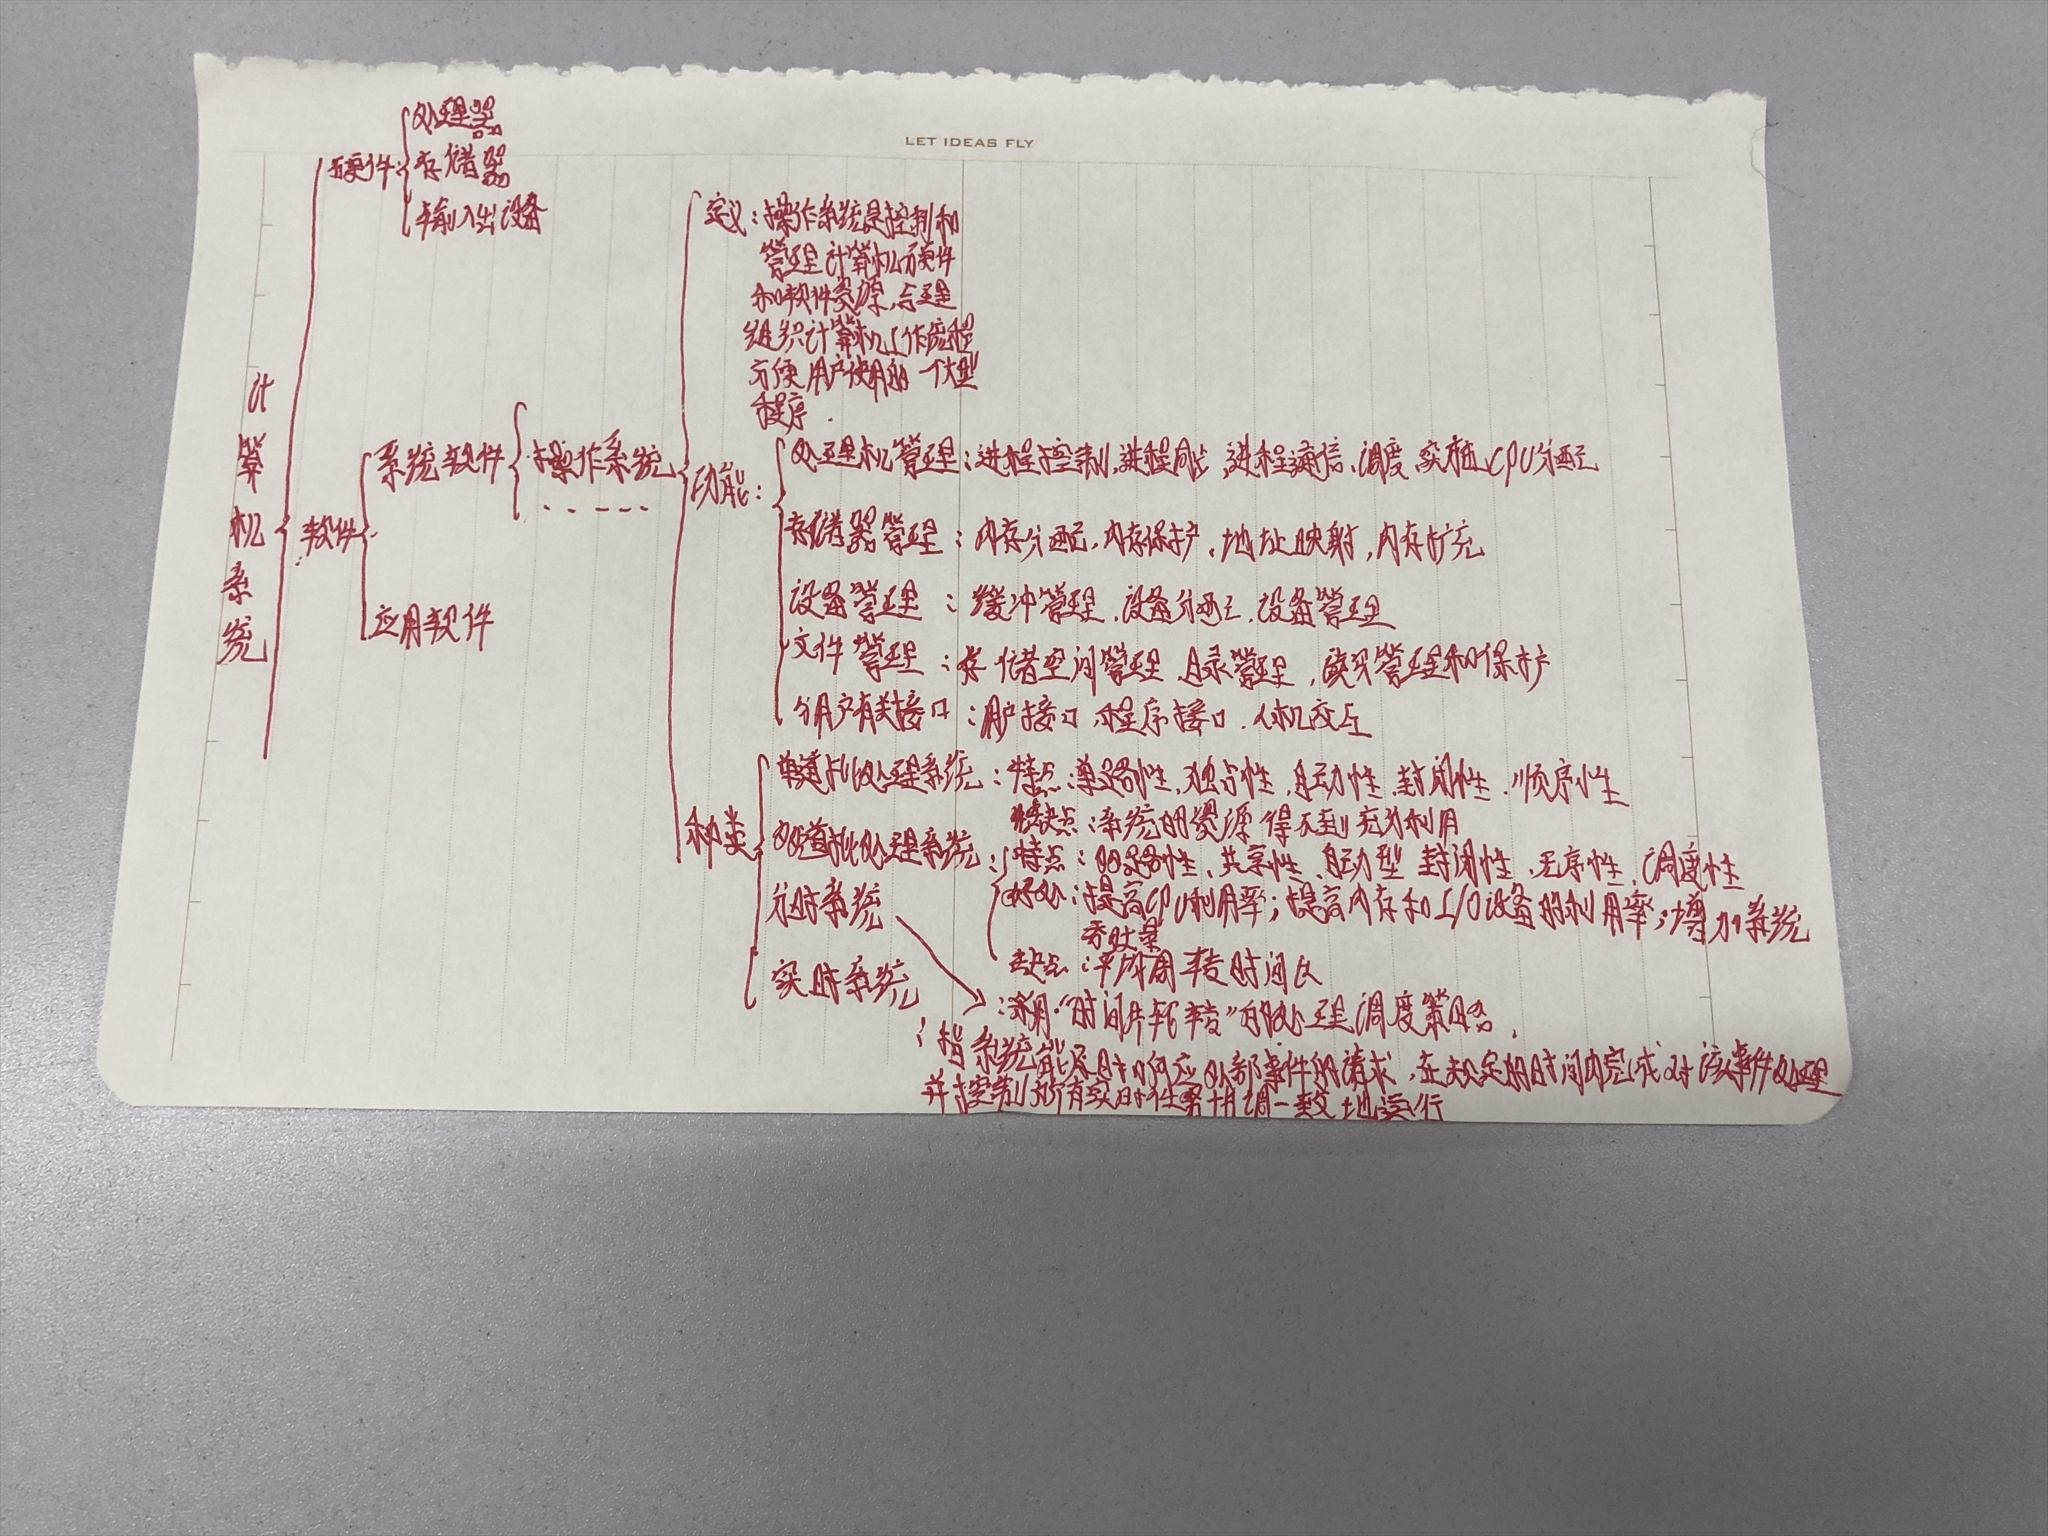 LET IDEAS FLY
计算机系统
硬件:
处理器
存储器
输入出设备
软件
系统软件
操作系统
......
应用软件
定义:操作系统是控制和
管理计算机硬件
和软件资源,合理
组织计算机工作流程
方便用户使用的一个大型
程序.
功能:
处理机管理:进程控制,进程同步,进程通信、调度、实施CPU分配
存储器管理:内存分配,内存保护,地址映射,内存扩充
设备管理:缓冲管理、设备分配、设备管理
文件管理:存储空间管理、目录管理,读写管理和保护
与用户有关接口:用户接口,程序接口、人机交互
种类
单道批处理系统:特点:单路性、独占性、自动性、封闭性、顺序性
缺点:系统的资源得不到充分利用
多道批处理系统:特点:多路性、共享性、自动型 封闭性、无序性、调度性
好处:提高CPU利用率;提高内存和I/O设备的利用率;增加系统
吞吐量
缺点:平均周转时间长
分时系统
:采用“时间片轮转”的处理调度策略.
实时系统
:指系统能及时响应外部事件的请求,在规定的时间内完成对该事件处理
并控制所有实时任务协调一致地运行